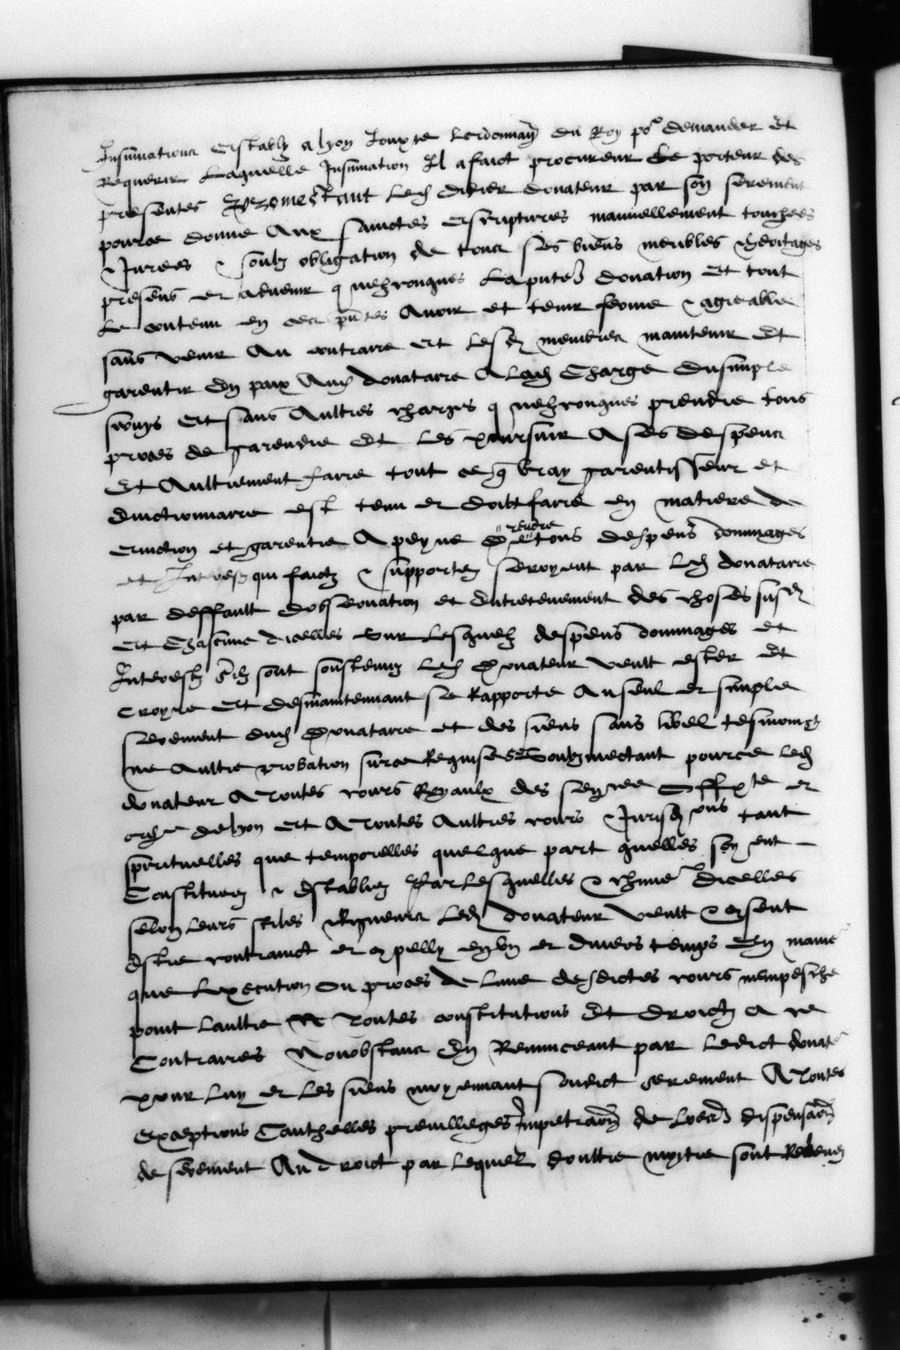 Insinuations establys a lyon Jouxte lordonnance du Roy por demander Et
Requerir Laquelle Insinuation Il a faict procureur Le porteur des
presentes Promectant Led didier donateur par son serement
pource donne Aux sainctes escriptures manuellement touchees
& Jurees & soubz obligation de tous ses biens meubles & heritages
presens et advenir q nehconques La pnte donation et tout
Le contenu en ces pntes Avoir et tenir ferme & agreable
sans venir Au contraire et lesd membres maintenir Et
garentir En paix Aud donataire A lad Charge dusimple
servys et sans Aultres charges q nehconques prendre tous
proces de garendie Et Les poursuir A ses despens
Et Aultrement faire tout ce q vray garentisseur et
Emctionnaire est tenu et doibt faire en matiere de
eviction et garentie A peyne de rendre tous despens dommages
et Interestz qui faictz & supportez seroyent par Led donataire
par deffault dobservation et Entretenement des choses susd
Et Chascune dicelles Sur Lesquelz despens dommages et
Interestz silz sont soustenuz Led Donateur veult ester Et
croyre Et desmaintenant se Rapporte Au seul et simple
serement dud Donataire et des siens sans libel tesmoings
ne Aultre probation surce Requise Soubzmectant pource led
donateur A toutes cours Royaulx des seneee et
de lyon Et A toutes Aultres cours & Jurisdons tant
spirituelles que temporelles quelque part quelles soyent
Constituees & Establies Par Lesquelles & chune Dicelles
selon leurs stiles Rigueurs Led donateur veult & consent
Estre contrainct et expelly en ung et divers temps En maniere
que Lexecution ou proces de Lune desdictes cours nempesche
point Laultre toutes constitutions Et Droictz A ce
Contraires Nonobstans En Renunceant par Ledict donateur
pour Luy et Les siens moyennant sondict serement A toutes
exceptions Cauthelles previlleges Impetraons de Loecd dispensaon
de serement Au droict par Lequel doultre moytie sont Relevez